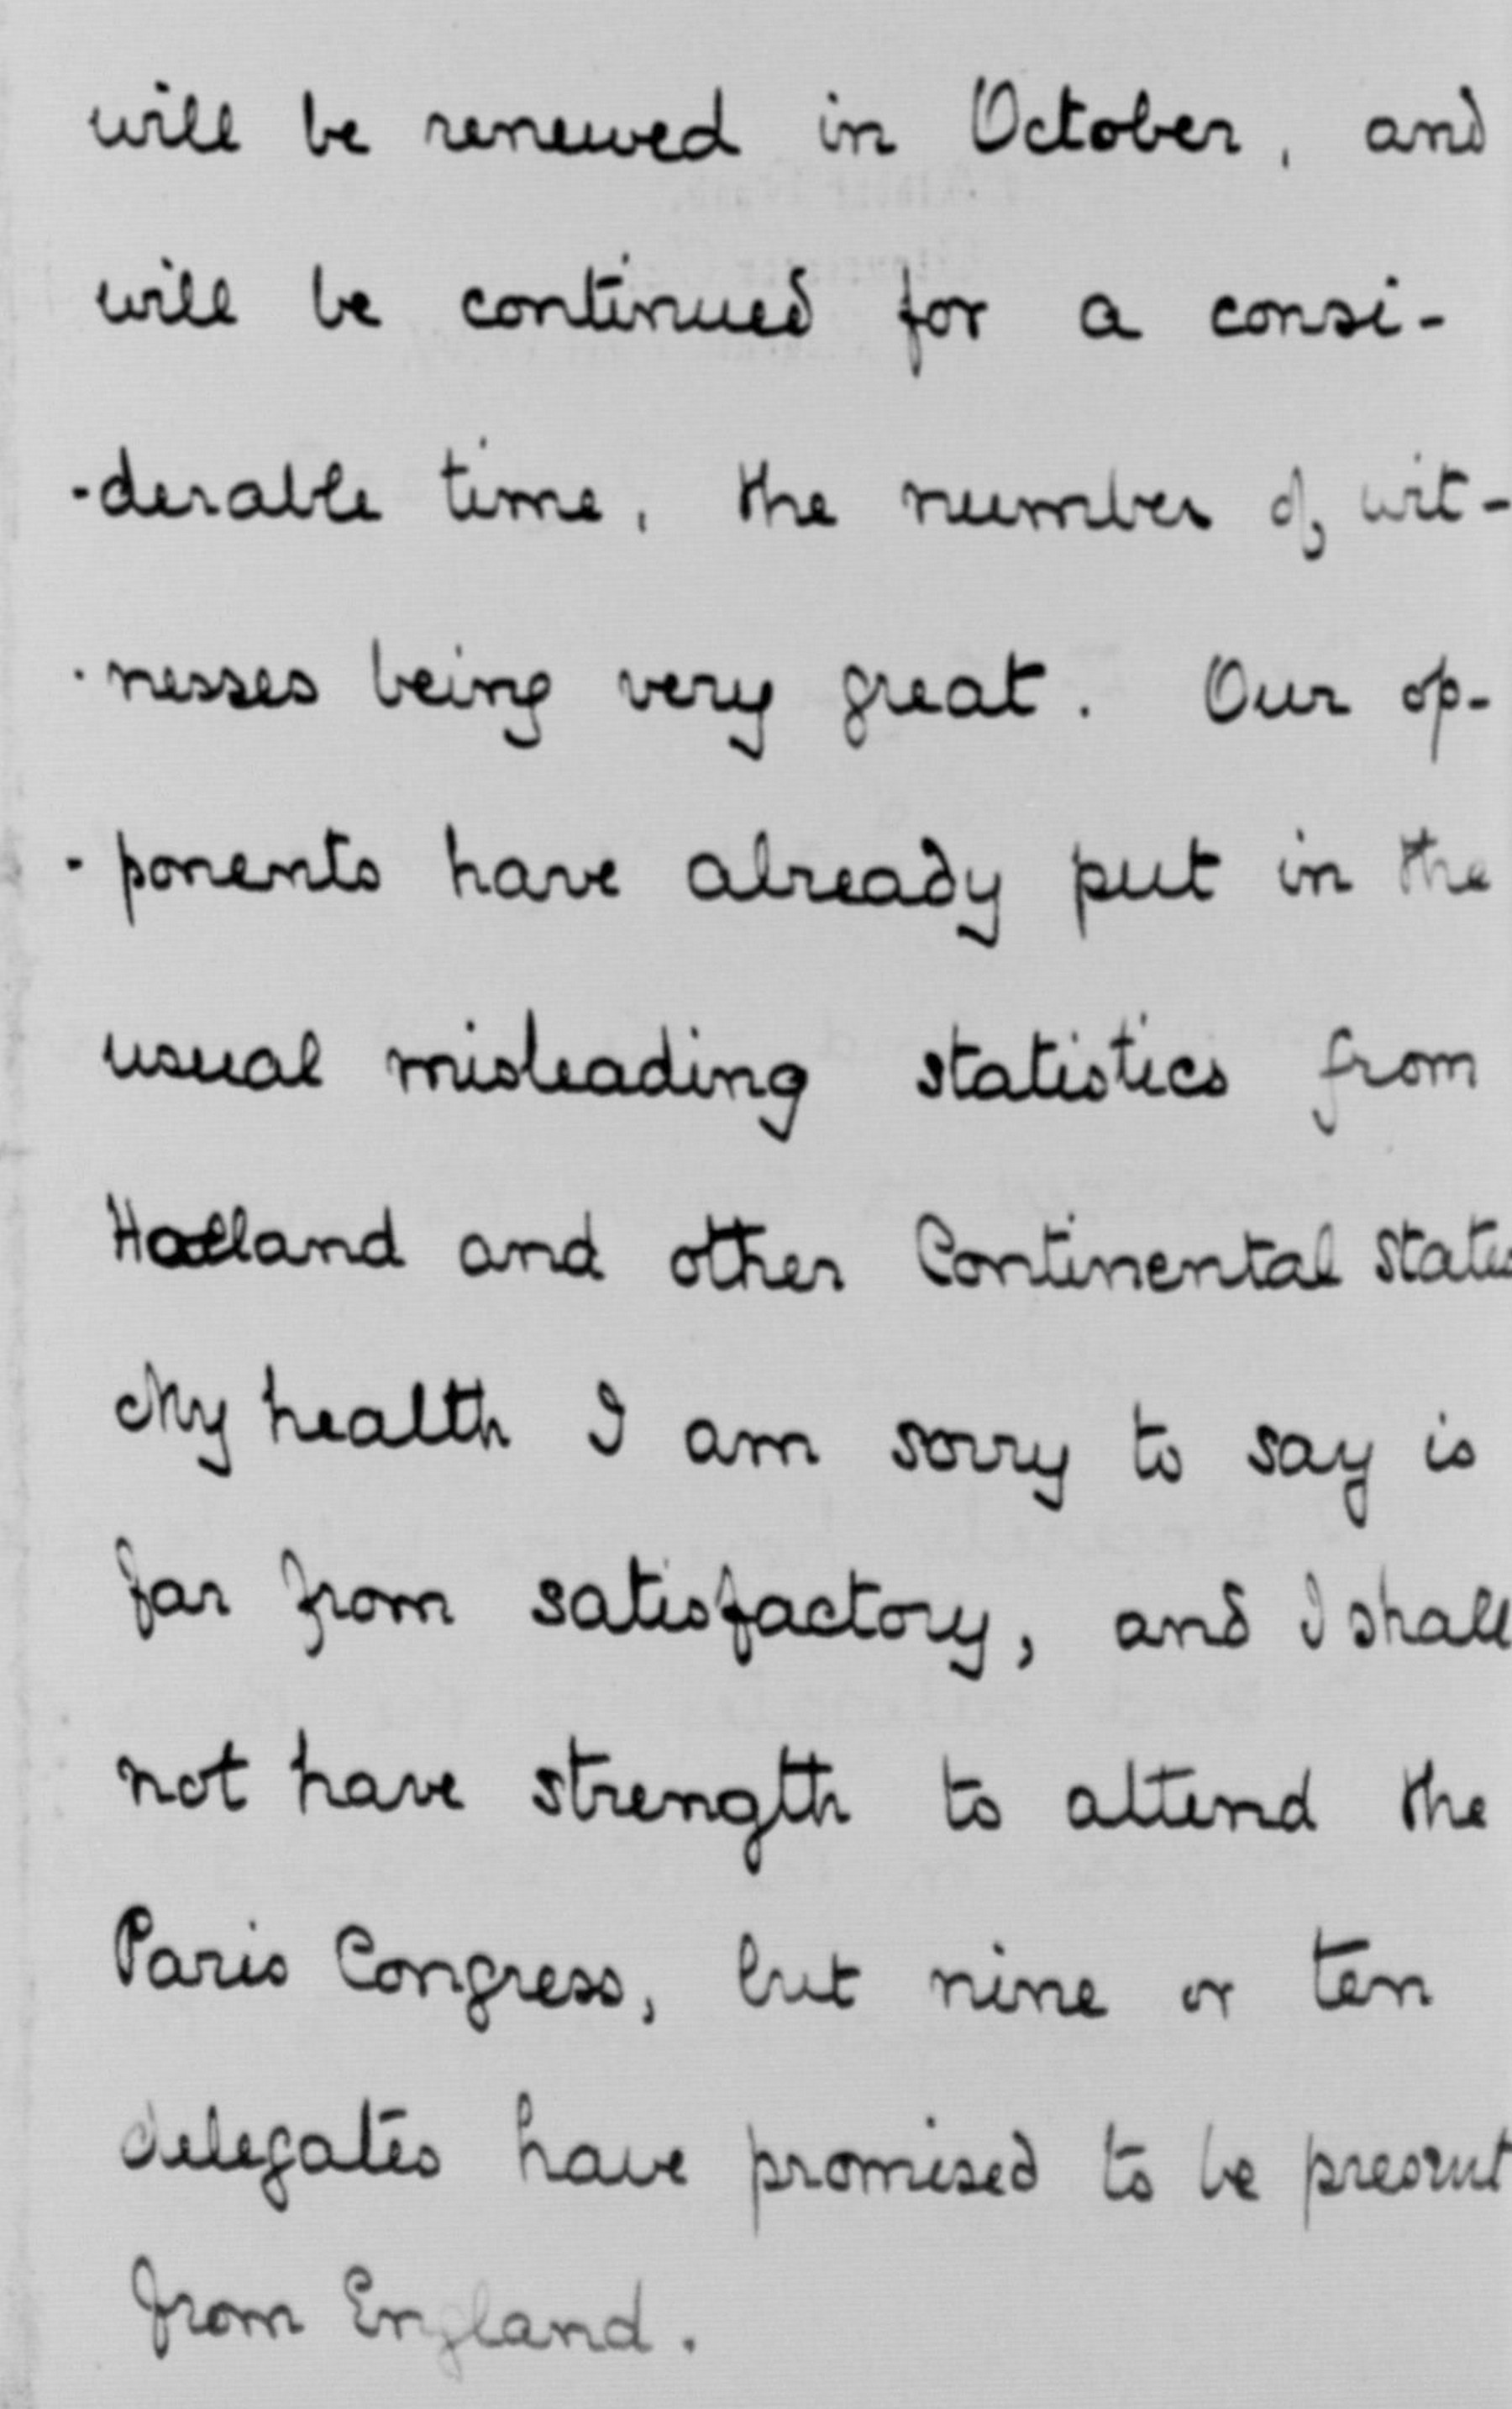 will be renewed in October, and
will be continued for a consi-
-derable time, the number of wit-
-nesses being very great. Our op-
-ponents have already put in the
usual misleading statistics from
Holland and other Continental States
My health I am sorry to say is
far from satisfactory, and I shall
not have strength to attend the
Paris Congress, but nine or ten
delegates have promised to be present
from England.